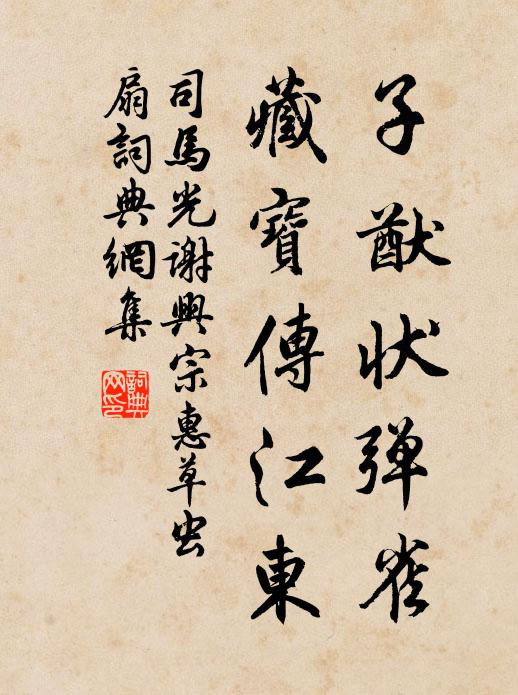 子猷状弹雀
藏寶傳江東
司馬光謝興宗惠草虫
扇詞典網集
詞典
网印